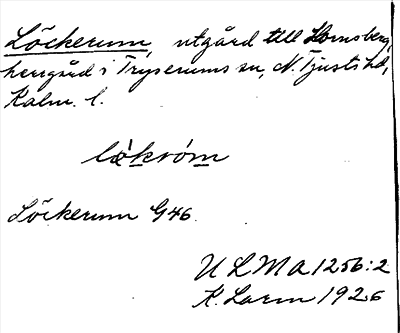 Löckerum, utgård till Hornsberg,
herrgård i Tryserums sn, N. Tjusts hd,
Kalm. l.
lö̀króm
Löckerum G46.
ULMA 1256:2
K. Larm 1926